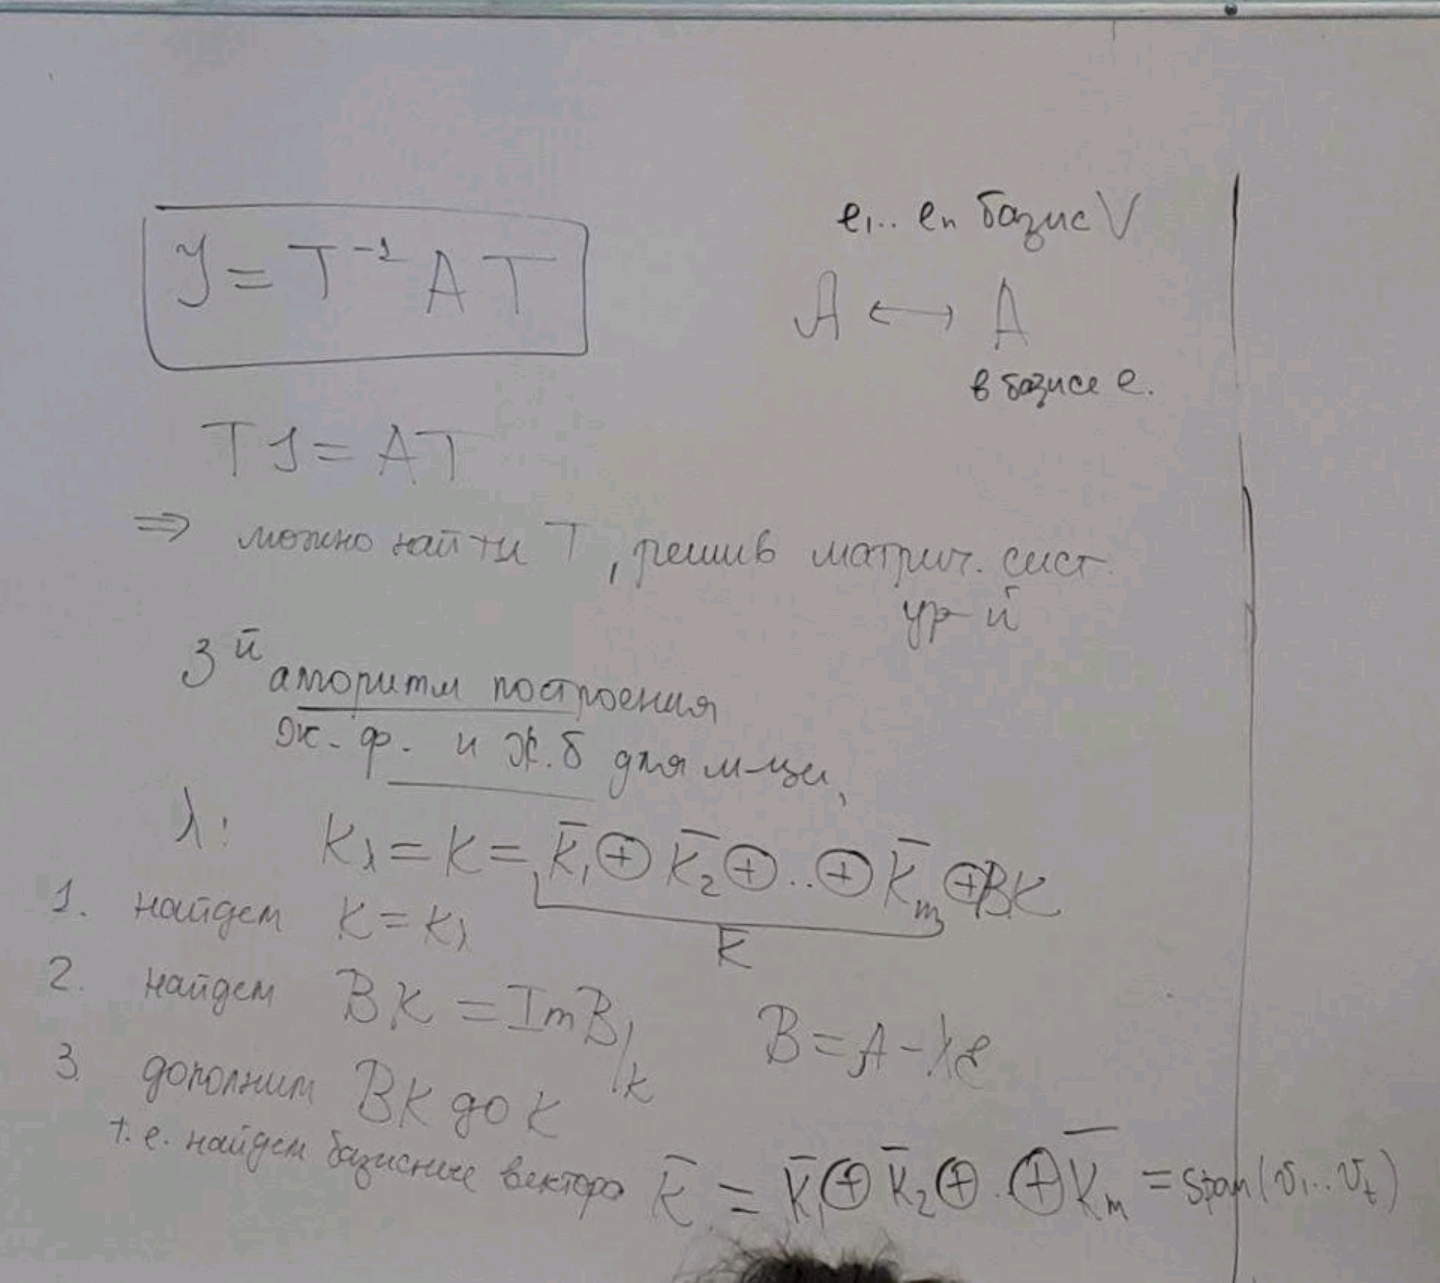 e₁.. eₙ базис V
J = T⁻¹ A T
𝒜 ⟷ A
в базисе e.
T J = A T
⇒ можно найти T, решив матрич. сист.
ур-й
3й алгоритм построения
ж. ф. и ж. б для м-цы,
λ: K_λ = K = K̄₁ ⊕ K̄₂ ⊕ .. ⊕ K̄ₘ ⊕ BK
K̄
1. найдем K = K_λ
2. найдем BK = Im B|_K B = A - λe
3. дополним BK до K
т. е. найдем базисные вектора K̄ = K̄₁ ⊕ K̄₂ ⊕ .. ⊕ K̄ₘ = span(v₁.. v_t)